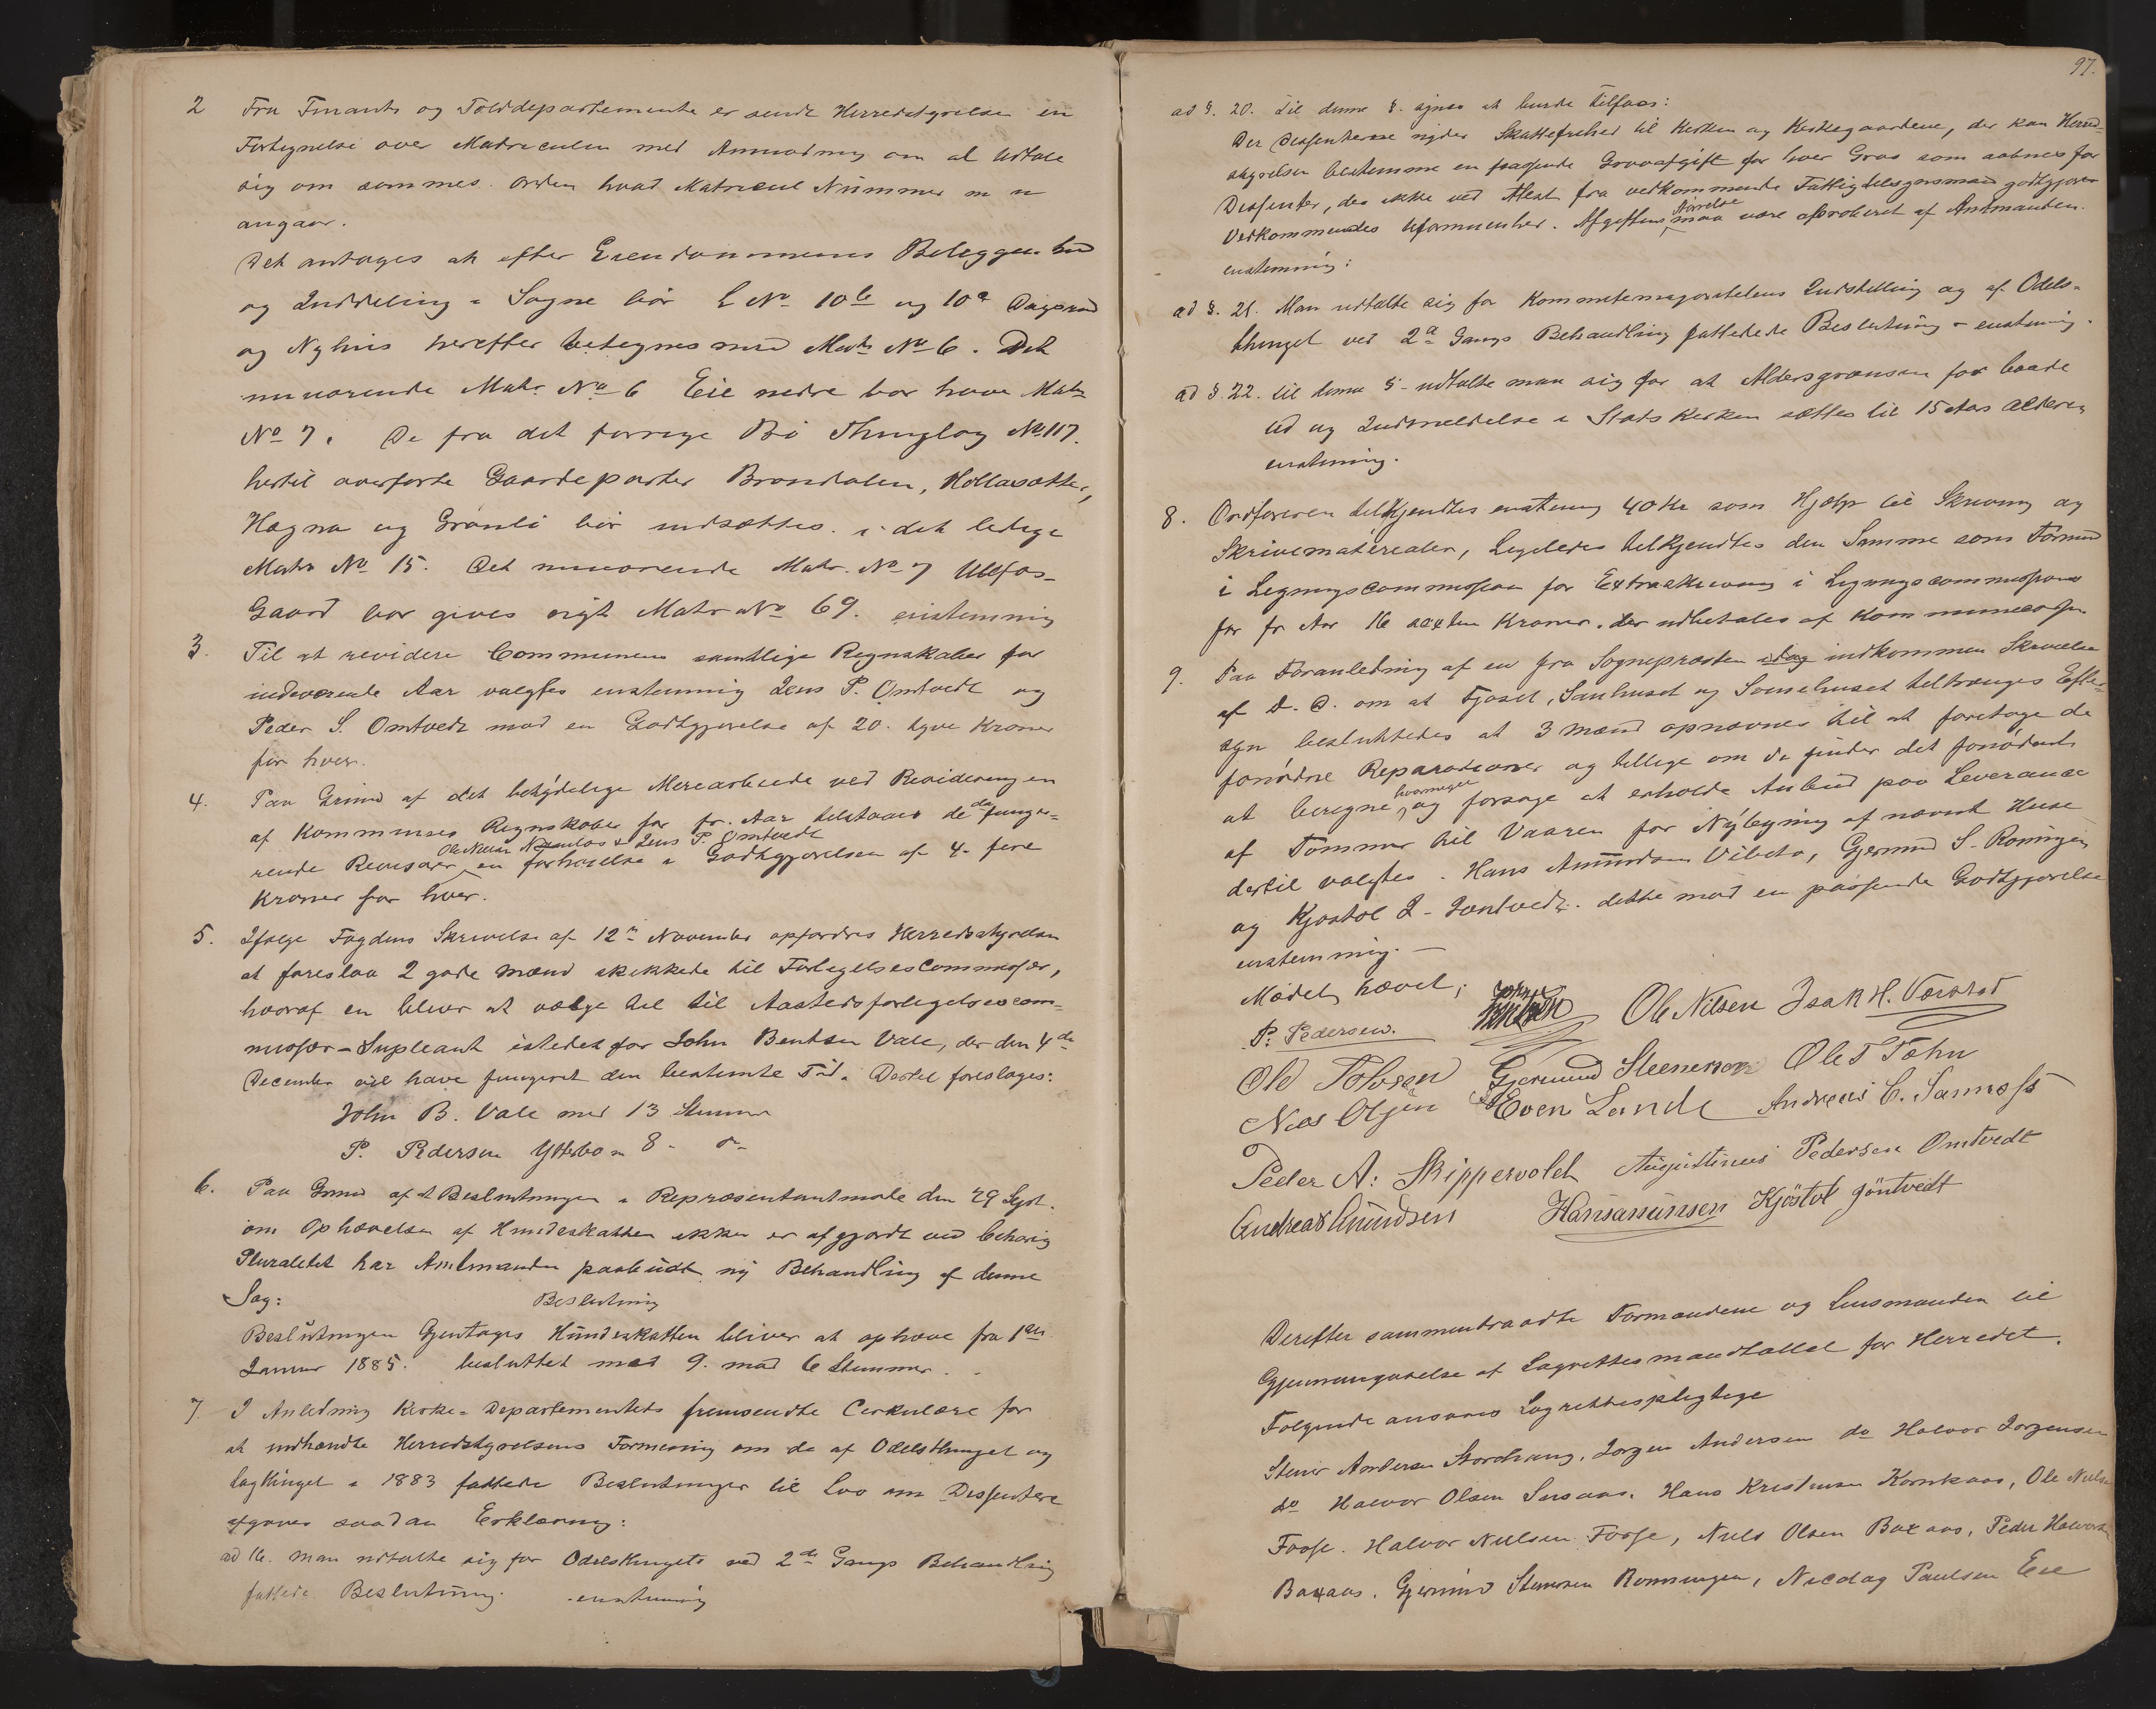 2 Fra Finants og Tolddepartementet er sendt Herredstyrelsen en
Fortegnelse over Matriculen med Anmodning om at Udtale
sig om sammes Orden hvad Matricul Nummer m m
angaar.
Det antages at efter Eiendommenes Beliggenhed
og Inddeling i Sogne bør L No 10b og 10a Dagsrud
og Nyhus herefter betegnes med Matr No 6. Det
nuværende Matr. No 6 Eie nedre bør have Matr
No 7. De fra det forrige Bø Thinglag No 117.
hertil overførte Gaardeparter Brondalen, Hollasætter,
Hagna og Grønli bør indsættes i det ledige
Matr No 15. Det nuværende Matr. No 7 Ulefos-
Gaard bør gives nyt Matr No 69. enstemmig
3. Til at revidere Communens samtlige Regnskaber for
indeværende Aar valgtes enstemmig Jens P. Omtvedt og
Peder S. Omtvedt mod en Godtgjørelse af 20. tyve Kroner
for hver.
4. Paa Grund af det betydelige Merearbeide ved Revideringen
af Kommunens Regnskaber for fr. Aar tilstaaes de da funge-
rende Revisorer Jens P. Omtvedt en forhøielse i Godtgjørelsen af 4. fire
Kroner for hver.
5. Ifølge Fogdens Skrivelse af 12te November opfordres Herredsstyrelsen
at foreslaa 2 gode Mænd skikkede til Forligelsescommissær,
hvoraf en bliver at vælge til Aastedsforligelsescom-
missær-Supleant istedet for John Bentsen Vale, der den 4de
December vil have fungeret den bestemte Tid. Dertil foresloges:
John B. Vale med 13 Stemmer
P. Pedersen Ytterbø m 8 - do
6. Paa Grund af at Beslutningen i Repræsentantmøde den 29 Sept.
om Ophævelse af Hundeskatten ikke er afgjordt ved behørig
Pluralitet har Amtmanden paabudt ny Behandling af denne
Sag: Beslutning
Beslutningen Gjentages Hundeskatten bliver at ophæve fra 1ste
Januar 1885. besluttet med 9. mod 6 Stemmer.
7. I Anledning Kirke-Departementets fremsendte Cirkulære for
at indhændte Herredstyrelsens Formening om de af Odelsthinget og
Lagthinget i 1883 fattede Beslutninger til Lov om Dissentere
afgaves saadan Erklæring:
ad 16. Man udtalte sig for Odelsthingets ved 2den Gangs Behandling
fattede Beslutning. enstemmig
97.
ad §. 20. Til denne §. synes at burde tilføies:
Der Dissenterne nyder Skattefrihed til Kirken og Kirkegaardene, der kan Herred-
styrelsen bestemme en passende Gravafgift for hver Grav som aabnes for
Dissenter, der ikke ved Attest fra vedkommende Fattigtilsynsmand godtgjøres
Vedkommendes Uformuenhed. Afgiftens Størrelse maa være aproberet af Amtmanden.
enstemmig:
ad §. 21. Man udtalte sig for Kommitemajoritetens Indstilling og af Odels-
thinget ved 2den Gangs Behandling fattede Beslutning - enstemmig.
ad §. 22. til denne § - udtalte man sig for at Aldersgrænsen for baade
Ud og Indmeldelse i Statskirken sættes til 15 Aars Alderen
enstemmig.
8. Ordføreren tilkjendtes enstemmig 40 Kr som Hjælp til Skrivning og
Skrivematerialer, Ligeledes tilkjendtes den Samme som Formand
i Ligningscommission for Extraskrivning i Ligningscommissionen
for fr Aar 16 sexten Kroner. der udbetales af Kommunecassen.
9. Paa Foranledning af en fra Sognepræsten idag indkommen Skrivelse
af D. D. om at Fjøset, Sauhuset og Svinehuset tiltrænges Efter-
syn besluttedes at 3 Mænd opnævnes til at foretage de
fornødne Reparationer og tillige om de finder det fornødent
at beregne hvormeget og forsøge at erholde Anbud paa Leverance
af Tømmer til Vaaren for Nybygning af nævnt Huse
dertil valgtes. Hans Amundsen Vibeto, Gjermund S. Rønningen
og Kjøstol J. Jøntvedt. dette mod en passende Godtgjørelse
enstemmig. -
Mødet hævet;
P. Pedersen. Ole Nilsen Isak H. Værstad
Ole Tolvsen Gjermund Steenersen Ole T Tæhn
Nils Olsen Even Lande Andreas C. Sannæss
Peder A: Skippervold Augustinus Pedersen Omtvedt
Andreas Amundsen Hans Hansen Kjöstol Jöntvedt
Derefter sammentraadte Formændene og Lensmanden til
Gjennemgaaelse af Lagrettesmandtallet for Herredet.
Følgende ansaaes Lagrettespligtige
Stener Andersen Stordrang, Jørgen Andersen do Halvor Jørgensen
do Halvor Olsen Sisaas. Hans Kristensen Kornkaas, Ole Nielsen
Fosse. Halvor Nielsen Fosse, Niels Olsen Baxaas, Peder Halvorsen
Baxaas. Gjermund Stenersen Rønningen, Nicolay Paulsen Eie